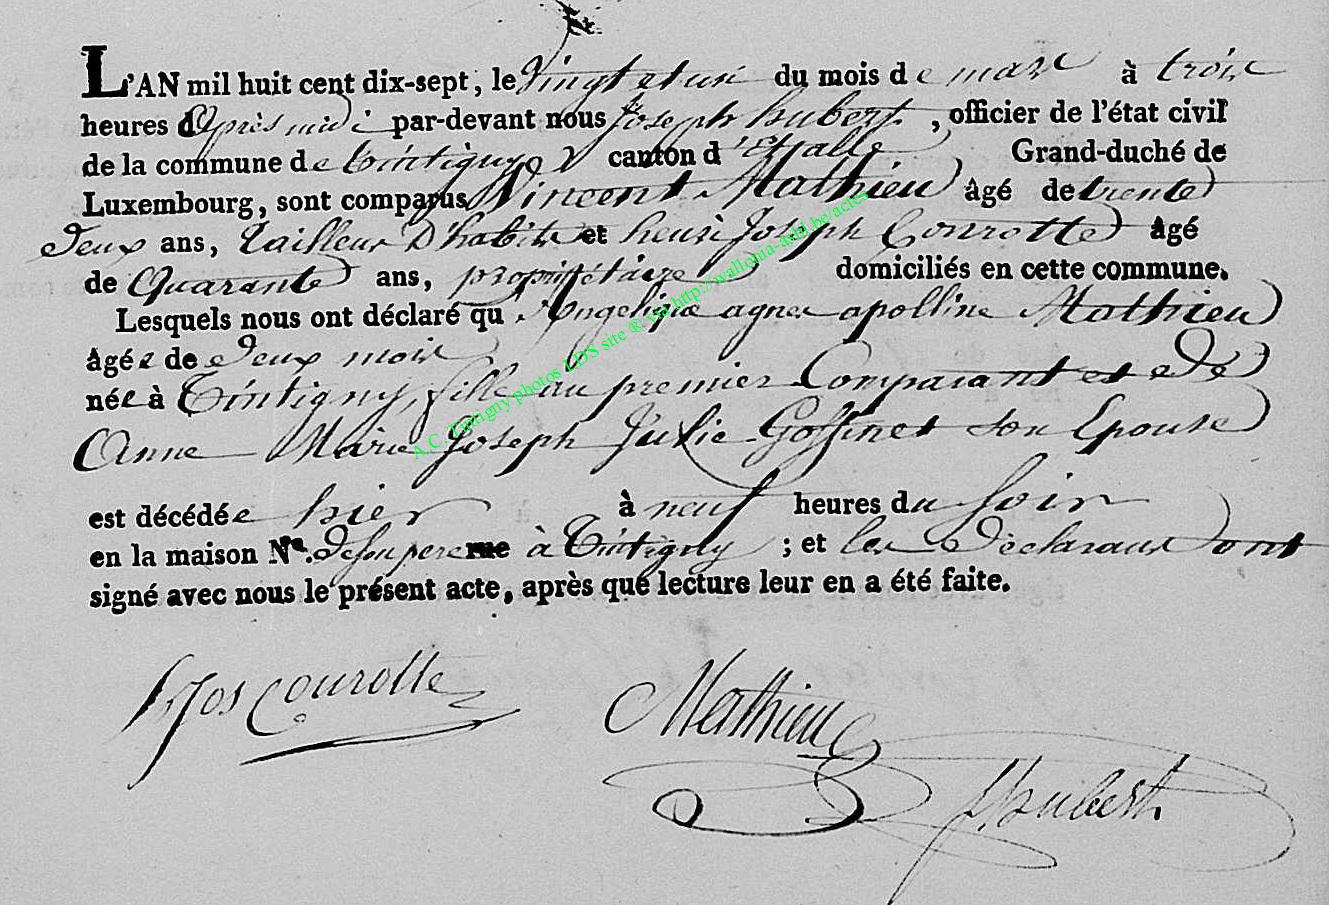 L'AN mil huit cent dix-sept, le Vingt et un du mois de mars à trois
heures d'après midi par-devant nous Joseph hubert, officier de l'état civil
de la commune de Tintigny canton d'Etalle Grand-duché de
Luxembourg, sont comparus Vincent Mathieu âgé de trente
Deux ans, tailleur D'habits et henri Joseph Courotte âgé
de Quarante ans, propriétaire domiciliés en cette commune.
Lesquels nous ont déclaré qu'Angelique agnes apolline Mathieu
âgée de Deux mois
née à Tintigny, fille au premier Comparant et De
Anne Marie Joseph Julie Goffinet son Epouse
est décédée hier à neuf heures du soir
en la maison No. De son pere rue à Tintigny ; et les Déclarans ont
signé avec nous le présent acte, après que lecture leur en a été faite.
hjos Courotte
Mathieu
J. hubert
A.C. Tintigny photos LDS site ® via http://wallonia-asbl.be/actes